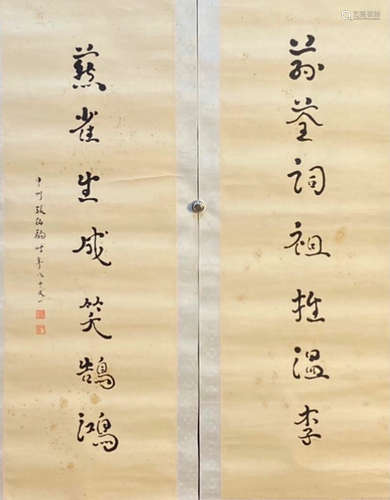 荪荃词祖推温李
燕雀生成笑鹄鸿
中州張伯駒時年八十又一